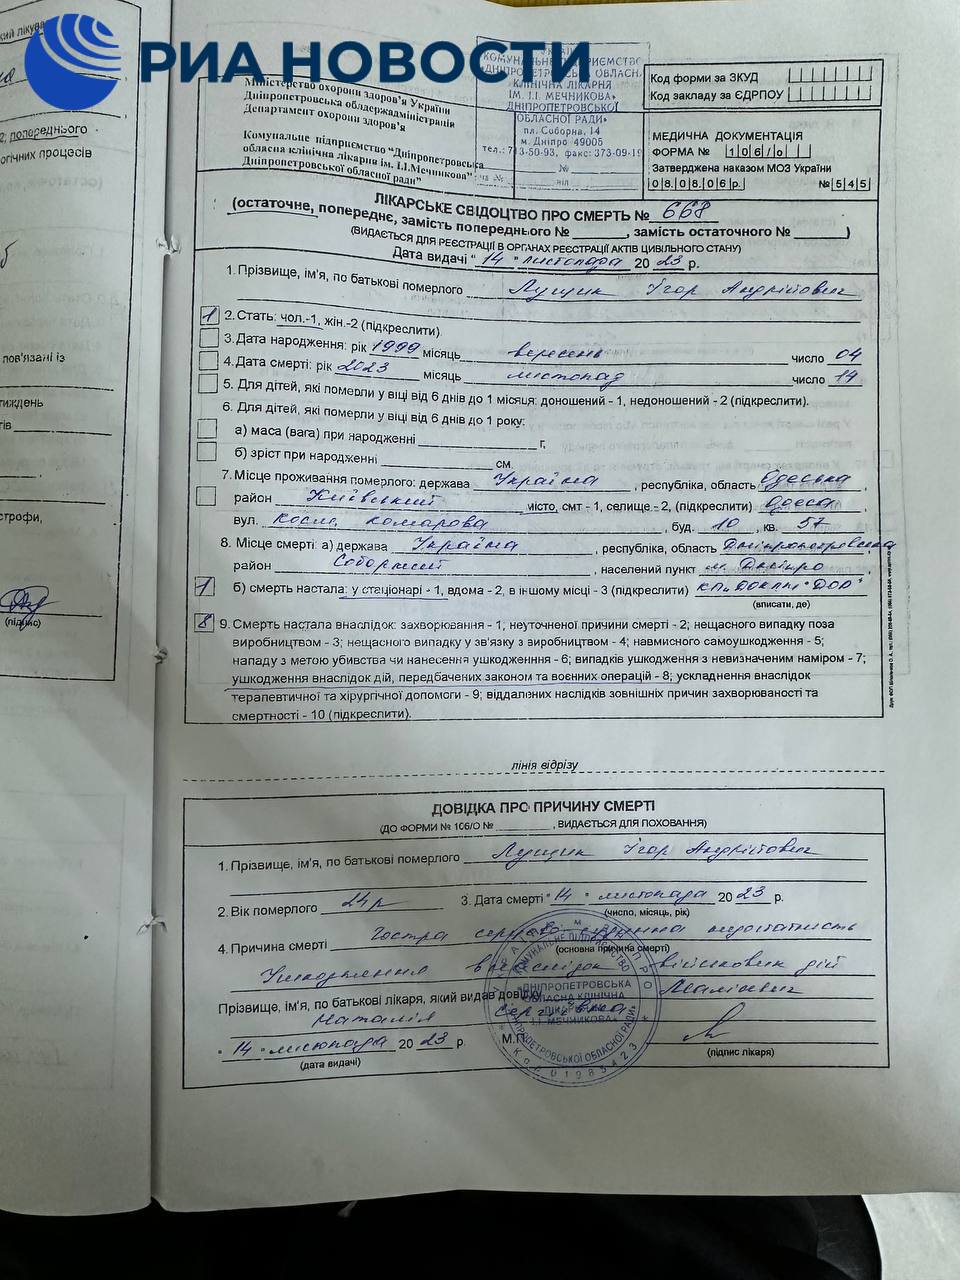 кий лікува
РИА НОВОСТИ
2; попереднього
огічних процесів
пов'язані із
тиждень
строфи,
(підпис)
Міністерство охорони здоров'я України
Дніпропетровська облдержадміністрація
Департамент охорони здоров'я
Комунальне підприємство "Дніпропетровська
обласна клінічна лікарня ім. І.І.Мечникова"
Дніпропетровської обласної ради"
КОМУНАЛЬНЕ ПІДПРИЄМСТВО
«ДНІПРОПЕТРОВСЬКА ОБЛАСНА
КЛІНІЧНА ЛІКАРНЯ
ІМ. І.І. МЕЧНИКОВА»
ДНІПРОПЕТРОВСЬКОЇ
ОБЛАСНОЇ РАДИ»
пл. Соборна, 14
м. Дніпро 49005
тел.: 713-50-93, факс: 373-09-19
№
Код форми за ЗКУД
Код закладу за ЄДРПОУ
МЕДИЧНА ДОКУМЕНТАЦІЯ
ФОРМА № 106/о
Затверджена наказом МОЗ України
08.08.06р. №545
ЛІКАРСЬКЕ СВІДОЦТВО ПРО СМЕРТЬ № 668
(остаточне, попереднє, замість попереднього № , замість остаточного № )
(ВИДАЄТЬСЯ ДЛЯ РЕЄСТРАЦІЇ В ОРГАНАХ РЕЄСТРАЦІЇ АКТІВ ЦИВІЛЬНОГО СТАНУ)
Дата видачі "14" листопада 2023 р.
1. Прізвище, ім'я, по батькові померлого Лущик Ігор Андрійович
1 2. Стать: чол.-1, жін.-2 (підкреслити).
3. Дата народження: рік 1999 місяць вересень число 04
4. Дата смерті: рік 2023 місяць листопад число 14
5. Для дітей, які померли у віці від 6 днів до 1 місяця: доношений - 1, недоношений - 2 (підкреслити).
6. Для дітей, які померли у віці від 6 днів до 1 року:
а) маса (вага) при народженні г,
б) зріст при народженні см.
7. Місце проживання померлого: держава Україна , республіка, область Одеська ,
район Київський місто, смт - 1, селище - 2, (підкреслити) Одеса ,
вул. Косм. Комарова , буд. 10 , кв. 57
8. Місце смерті: а) держава Україна , республіка, область Дніпропетровська
район Соборний , населений пункт м. Дніпро ,
1 б) смерть настала: у стаціонарі - 1, вдома - 2, в іншому місці - 3 (підкреслити) КП "ДОКЛМ" ДОР"
(вписати, де)
8 9. Смерть настала внаслідок: захворювання - 1; неуточненої причини смерті - 2; нещасного випадку поза
виробництвом - 3; нещасного випадку у зв'язку з виробництвом - 4; навмисного самоушкодження - 5;
нападу з метою убивства чи нанесення ушкодженння - 6; випадків ушкодження з невизначеним наміром - 7;
ушкодження внаслідок дій, передбачених законом та воєнних операцій - 8; ускладнення внаслідок
терапевтичної та хірургічної допомоги - 9; віддалених наслідків зовнішніх причин захворюваності та
смертності - 10 (підкреслити).
лінія відрізу
ДОВІДКА ПРО ПРИЧИНУ СМЕРТІ
(ДО ФОРМИ № 106/О № , ВИДАЄТЬСЯ ДЛЯ ПОХОВАННЯ)
1. Прізвище, ім'я, по батькові померлого Лущик Ігор Андрійович
2. Вік померлого 24р 3. Дата смерті "14" листопада 2023 р.
(число, місяць, рік)
4. Причина смерті Гостра серцево-судинна недостатність
(основна причина смерті)
Ушкодження внаслідок військових дій
Прізвище, ім'я, по батькові лікаря, який видав довідку Малієвич
Наталія Сергіївна
"14" листопада 2023 р. М.П.
(дата видачі) (підпис лікаря)
КОМУНАЛЬНЕ ПІДПРИЄМСТВО
«ДНІПРОПЕТРОВСЬКА
ОБЛАСНА КЛІНІЧНА
ЛІКАРНЯ
І.І. МЕЧНИКОВА»
ДНІПРОПЕТРОВСЬКОЇ ОБЛАСНОЇ РАДИ»
Код 01985423